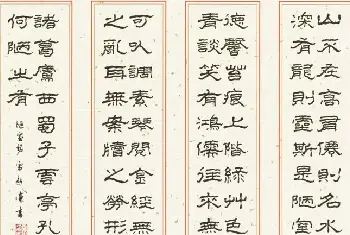 山不在高有僊則名水
深有龍則靈斯是陋室
德馨苔痕上階綠草色
青談笑有鴻儒往來無
可以調素琴閱金經無
之亂耳無案牘之勞形
諸葛廬西蜀子雲亭孔
何陋之有
陋室銘